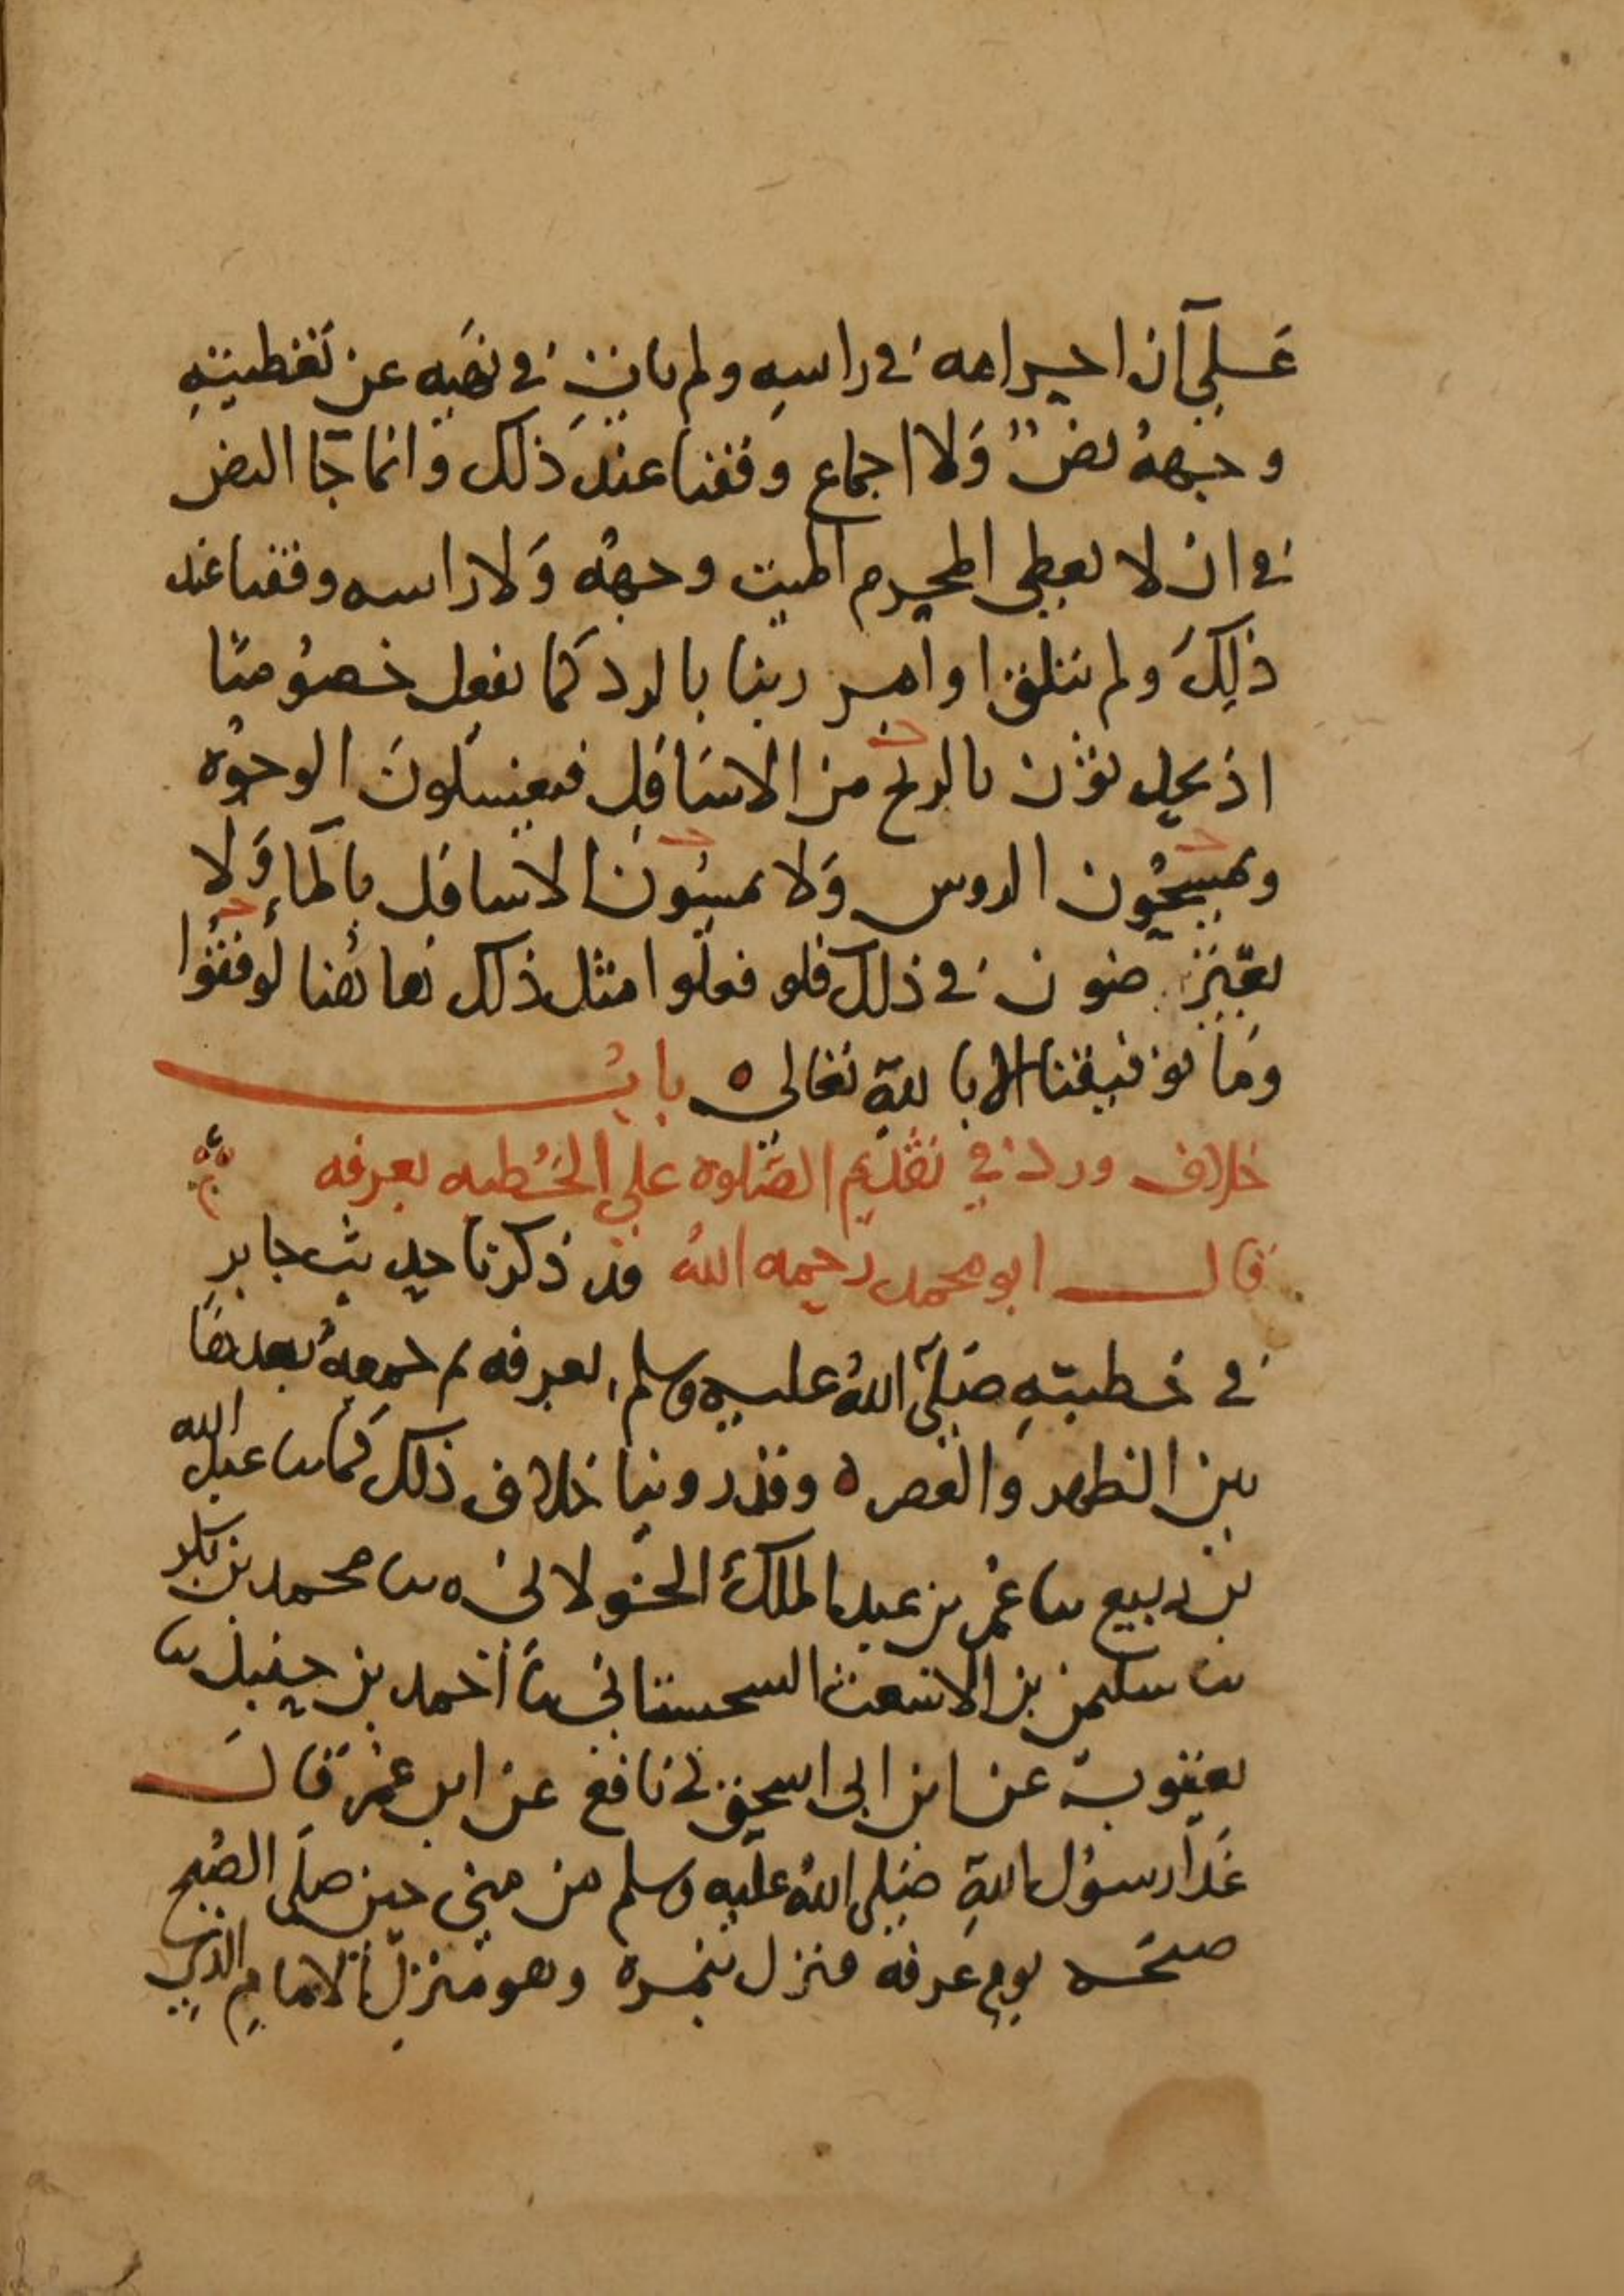 على ان احرامه في راسه ولم يات في نهيه عن تغطيته
وجهه نص ولا اجماع وقفنا عند ذلك وانما جا النص
في ان لا يغطى المحرم الميت وجهه ولا راسه وقفنا عند
ذلك ولم نتلق اوامر ربنا بالرد كما يفعل خصومنا
اذ يحدثون بالريح من الاسافل فيغسلون الوجوه
ويمسحون الروس ولا يمسون الاسافل بالماء ولا
يعترضون في ذلك فلو فعلوا مثل ذلك هاهنا لوفقوا
وما توفيقنا الا بالله تعالى باب
خلاف ورد في تقديم الصلوة على الخطبه بعرفه
قال ابو محمد رحمه الله قد ذكرنا حديث جابر
في خطبته صلى الله عليه وسلم بعرفه ثم جمعه بعدها
بين الظهر والعصر ه وقد روينا خلاف ذلك كما سا عبد الله
بن ربيع سا عمر بن عبد الملك الخولاني ه سا محمد بن بكر
سا سليمن بن الاشعث السجستاني سا احمد بن حنبل سا
يعقوب عن ابن ابى اسحق نافع عن ابن عمر قال
غدا رسول الله صلى الله عليه وسلم من منى حين صلى الصبح
صبيحه يوم عرفه فنزل بنمره وهو منزل الامام الذي